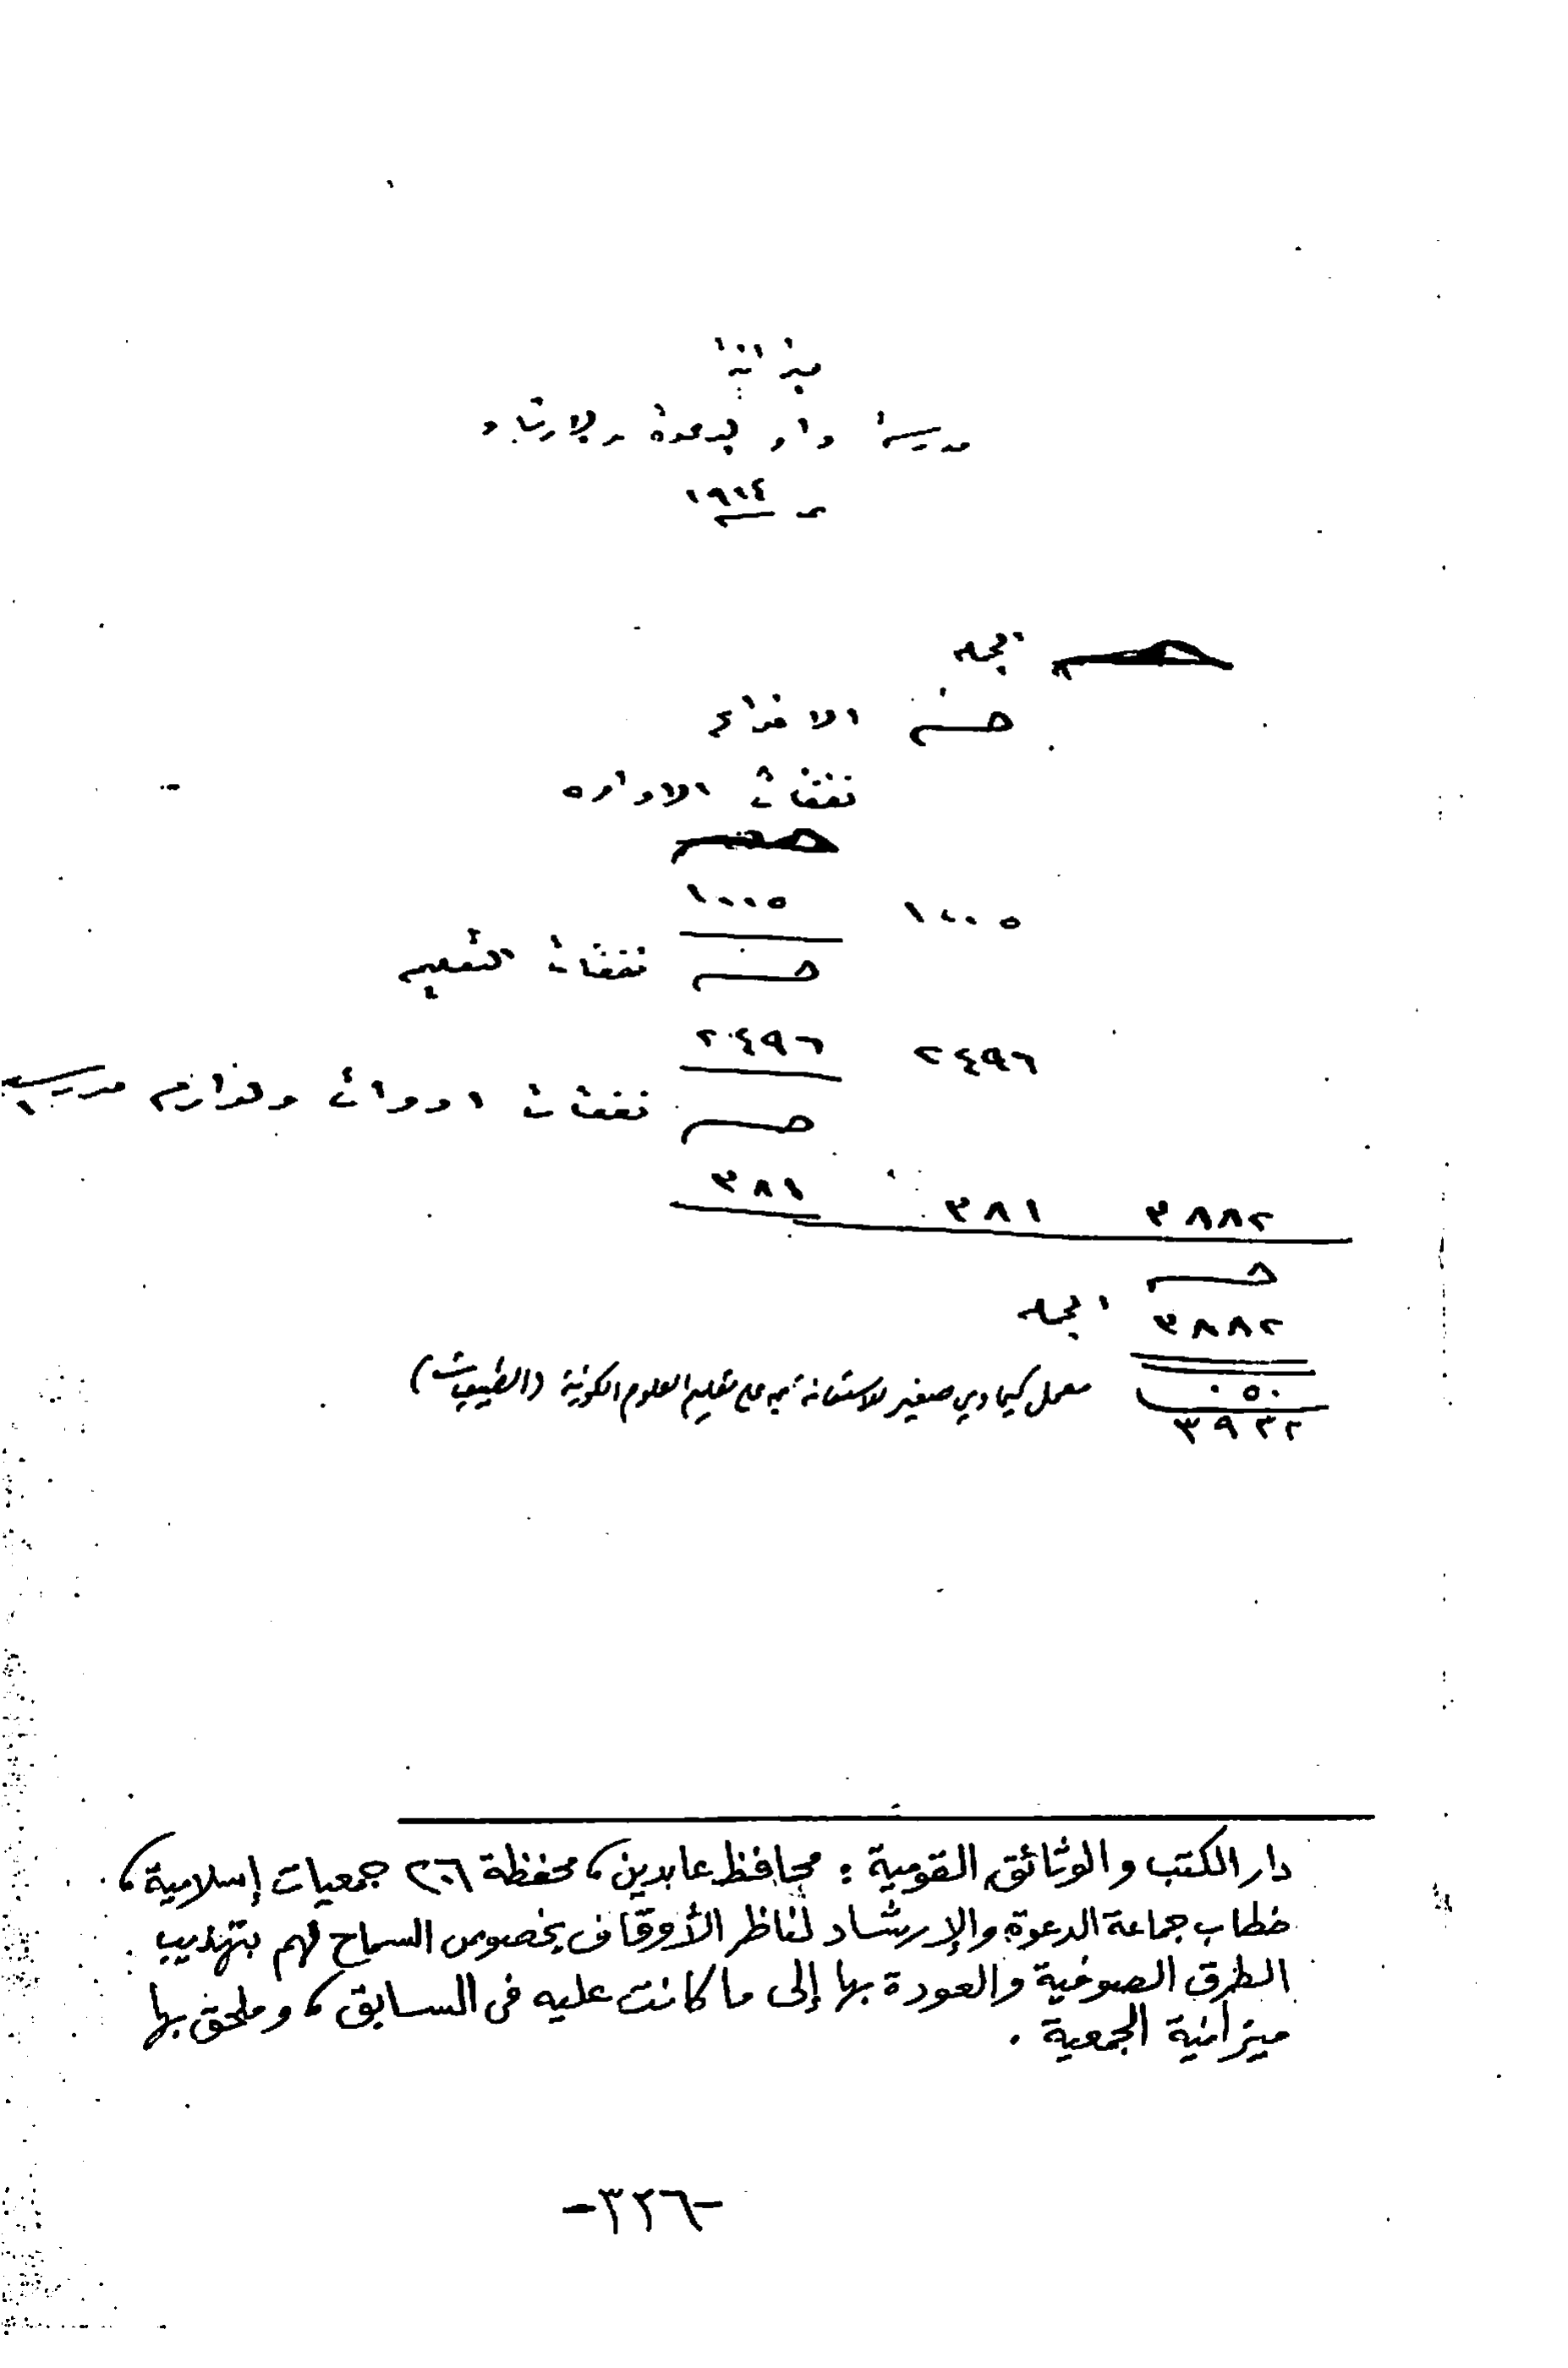 ميزانية
مدرسة دار الدعوة والارشاد
١٩١٤
الجمله
الافراع
نفقات الاداره
١٠٠٥ ١٠٠٥
نفقات التعليم
٢٤٩٦ ٢٤٩٦
نفقات ادوات ولوازم مدرسيه
٣٨٨٢ ٣٨١ ٣٨١
٣٨٨٢ الجمله
٠٥٠ معمل كيماوي صغير للاستعانة به على تعليم العلوم الكونية (الطبيعيات)
٣٩٣٢
دار الكتب والوثائق القومية : محافظ عابدين، محفظة ٢٠٦ جمعيات إسلامية،
خطاب جماعة الدعوة والإرشاد لناظر الأوقاف بخصوص السماح لهم بتهذيب
الطرق الصوفية والعودة بها إلى ما كانت عليه فى السابق، وملحق بها
ميزانية الجمعية .
-٣٢٦-